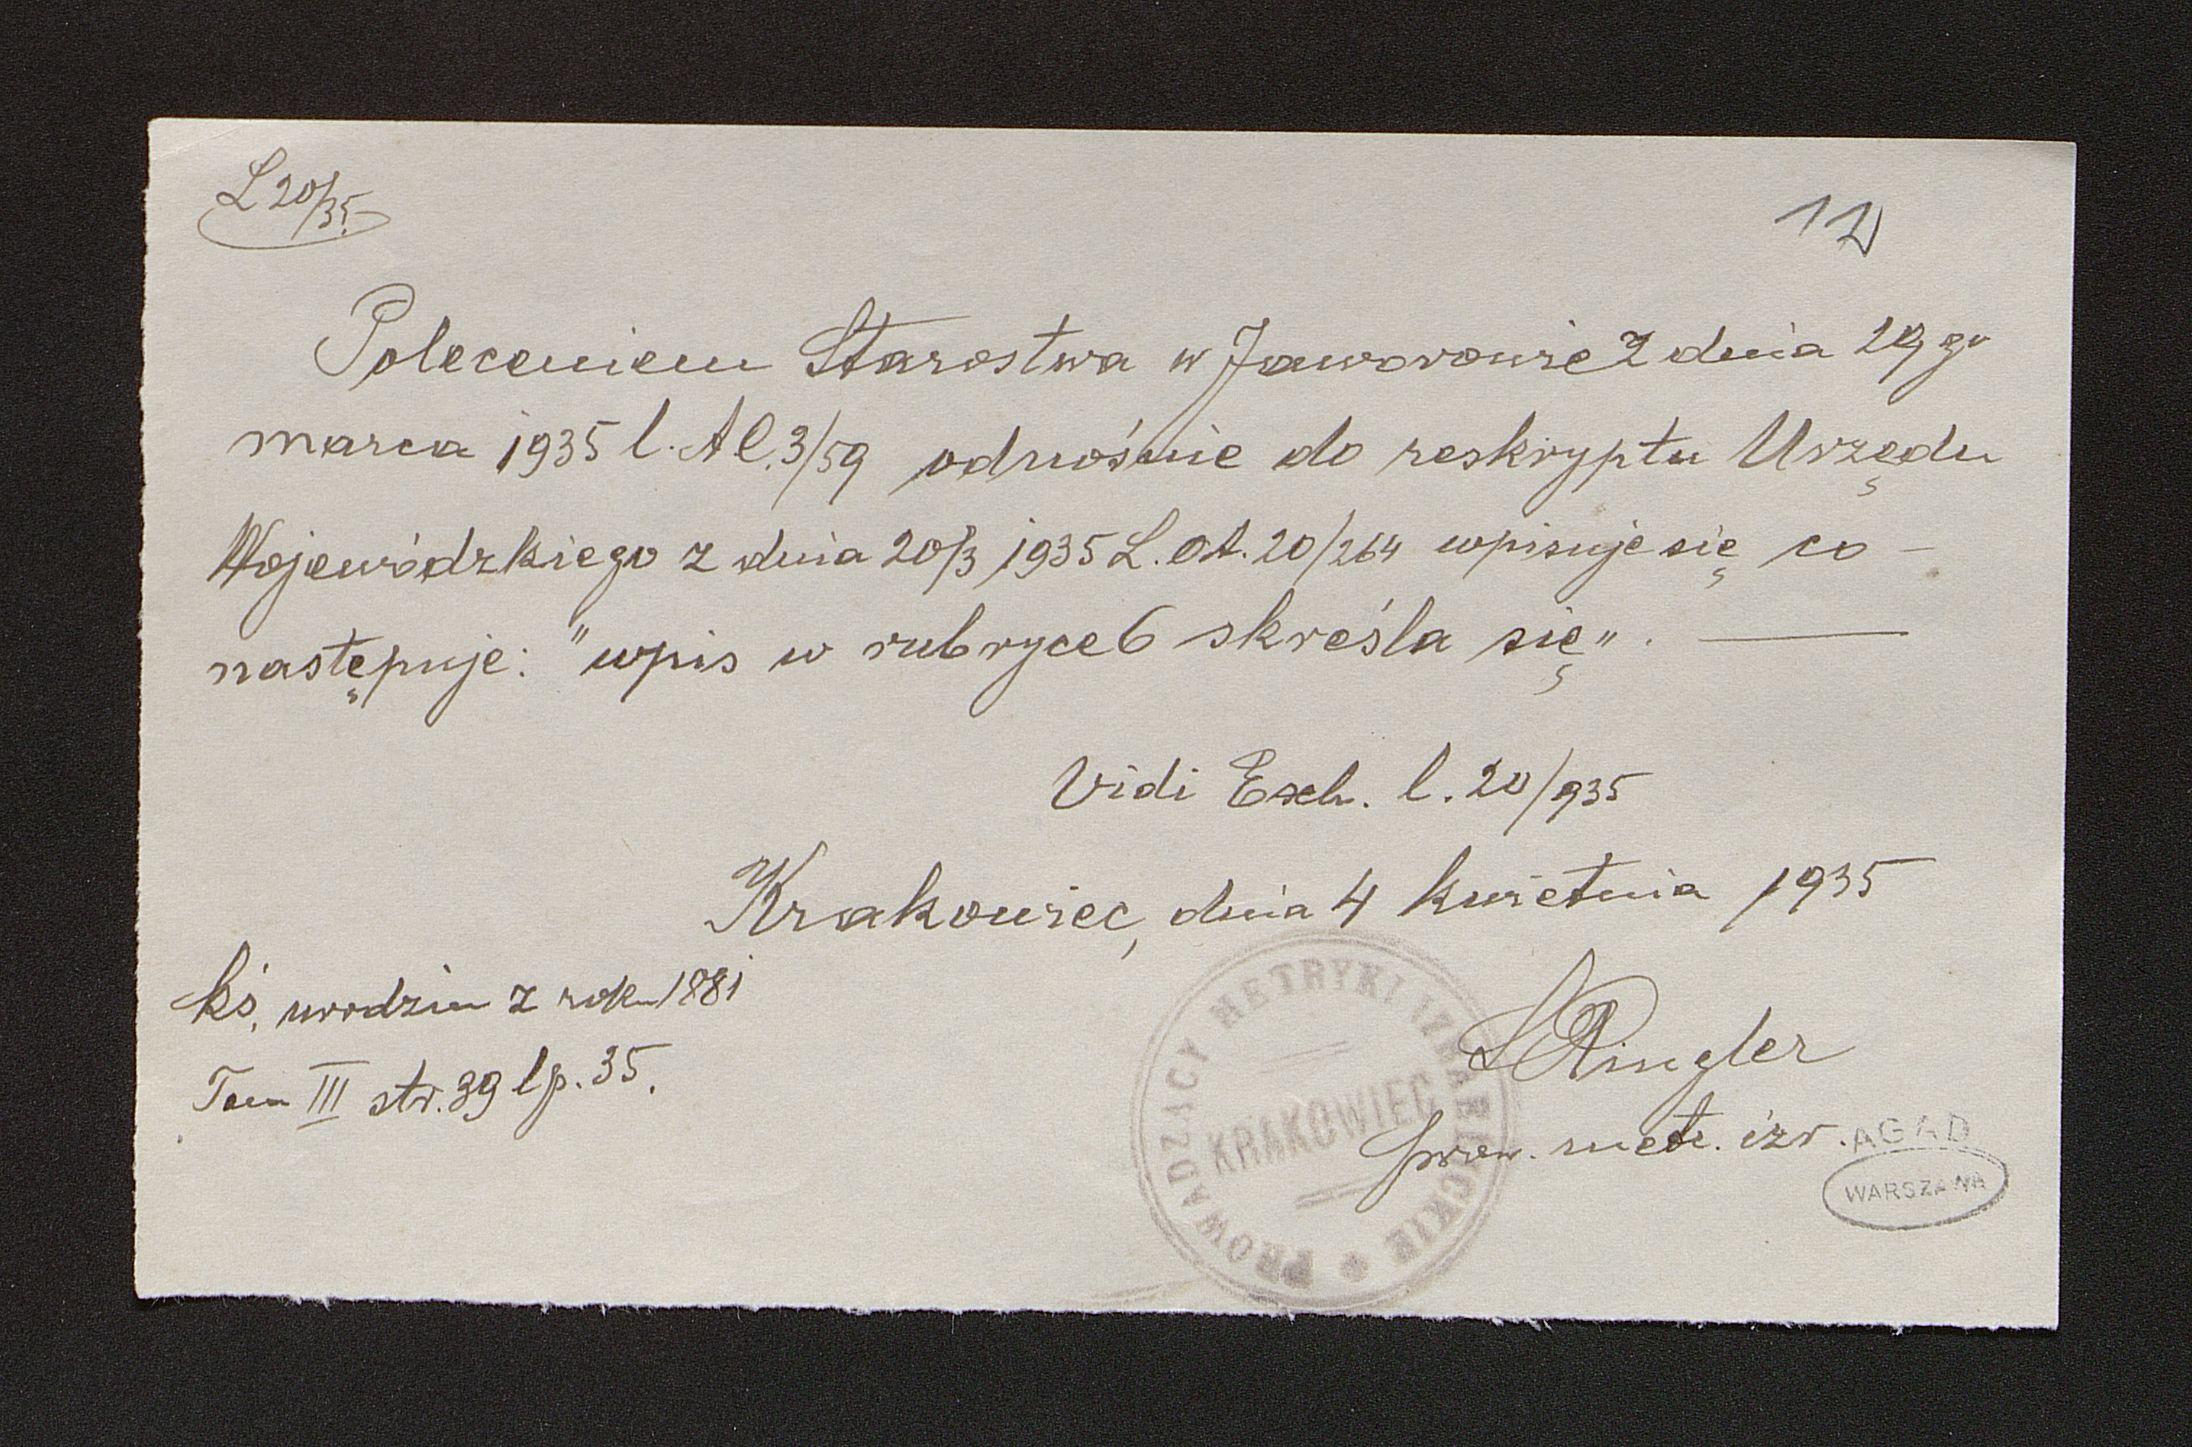 L 20/35.
12
Poleceniem Starostwa w Jaworowie z dnia 29 go
marca 1935 l. Al. 3/59 odnośnie do reskryptu Urzędu
Wojewódzkiego z dnia 20/3 1935 L. At. 20/264 wpisuje się co -
następuje: "wpis w rubryce 6 skreśla się".
Vidi Exh. l. 20/935
Krakowiec, dnia 4 kwietnia 1935
ks. urodzin z roku 1881
Tom III str. 39 lp. 35.
Ringler
prow. metr. izr.
PROWADZĄCY METRYKI IZRAELICKIE
KRAKOWIEC
AGAD
WARSZAWA